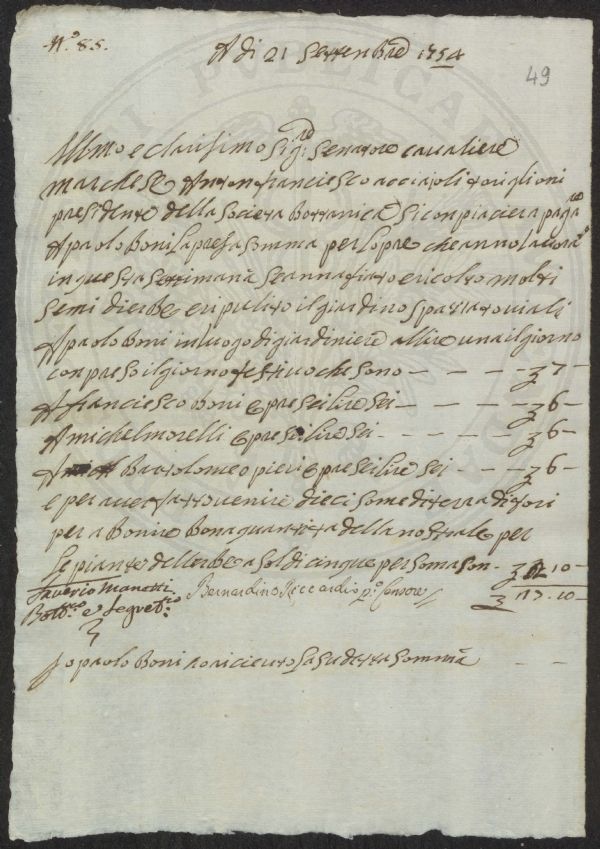 N.º 85.
A di 21 Settenbre 1754
49
Illmo e clarisimo Sigre Senatore cavaliere
marchese Anton franciesco acciajoli toriglioni
presidente della Societa Bottanica Si conpiaciera pagare
A paolo Boni la presa somma per lopre che anno lavorato
in questa settimana Se anna fiato e ricolto molti
semi dierbe e ripulito il giardino spazzato viali
A paolo Boni in luogo di giardiniere a llire una il giorno
conpreso il giorno festivo che sono — — — — 7 —
A franciesco Boni opre sei lire sei — — — — 6 —
A michel morelli opre sei lire sei — — — — 6 —
A Bartolomeo pieri opre sei lire sei — — — 6 —
e per aver fatto venire dieci some di terra di fori
per a Bonire Bona quantita della nostrale per
le piante dellerbe a soldi cinque per soma son — 2 10 —
Saverio Manetti
Bottco e Segretrio
Bernardino Riccardi p.º Censore
17.10 —
Io paolo Boni o riceuto la sudetta somma — —